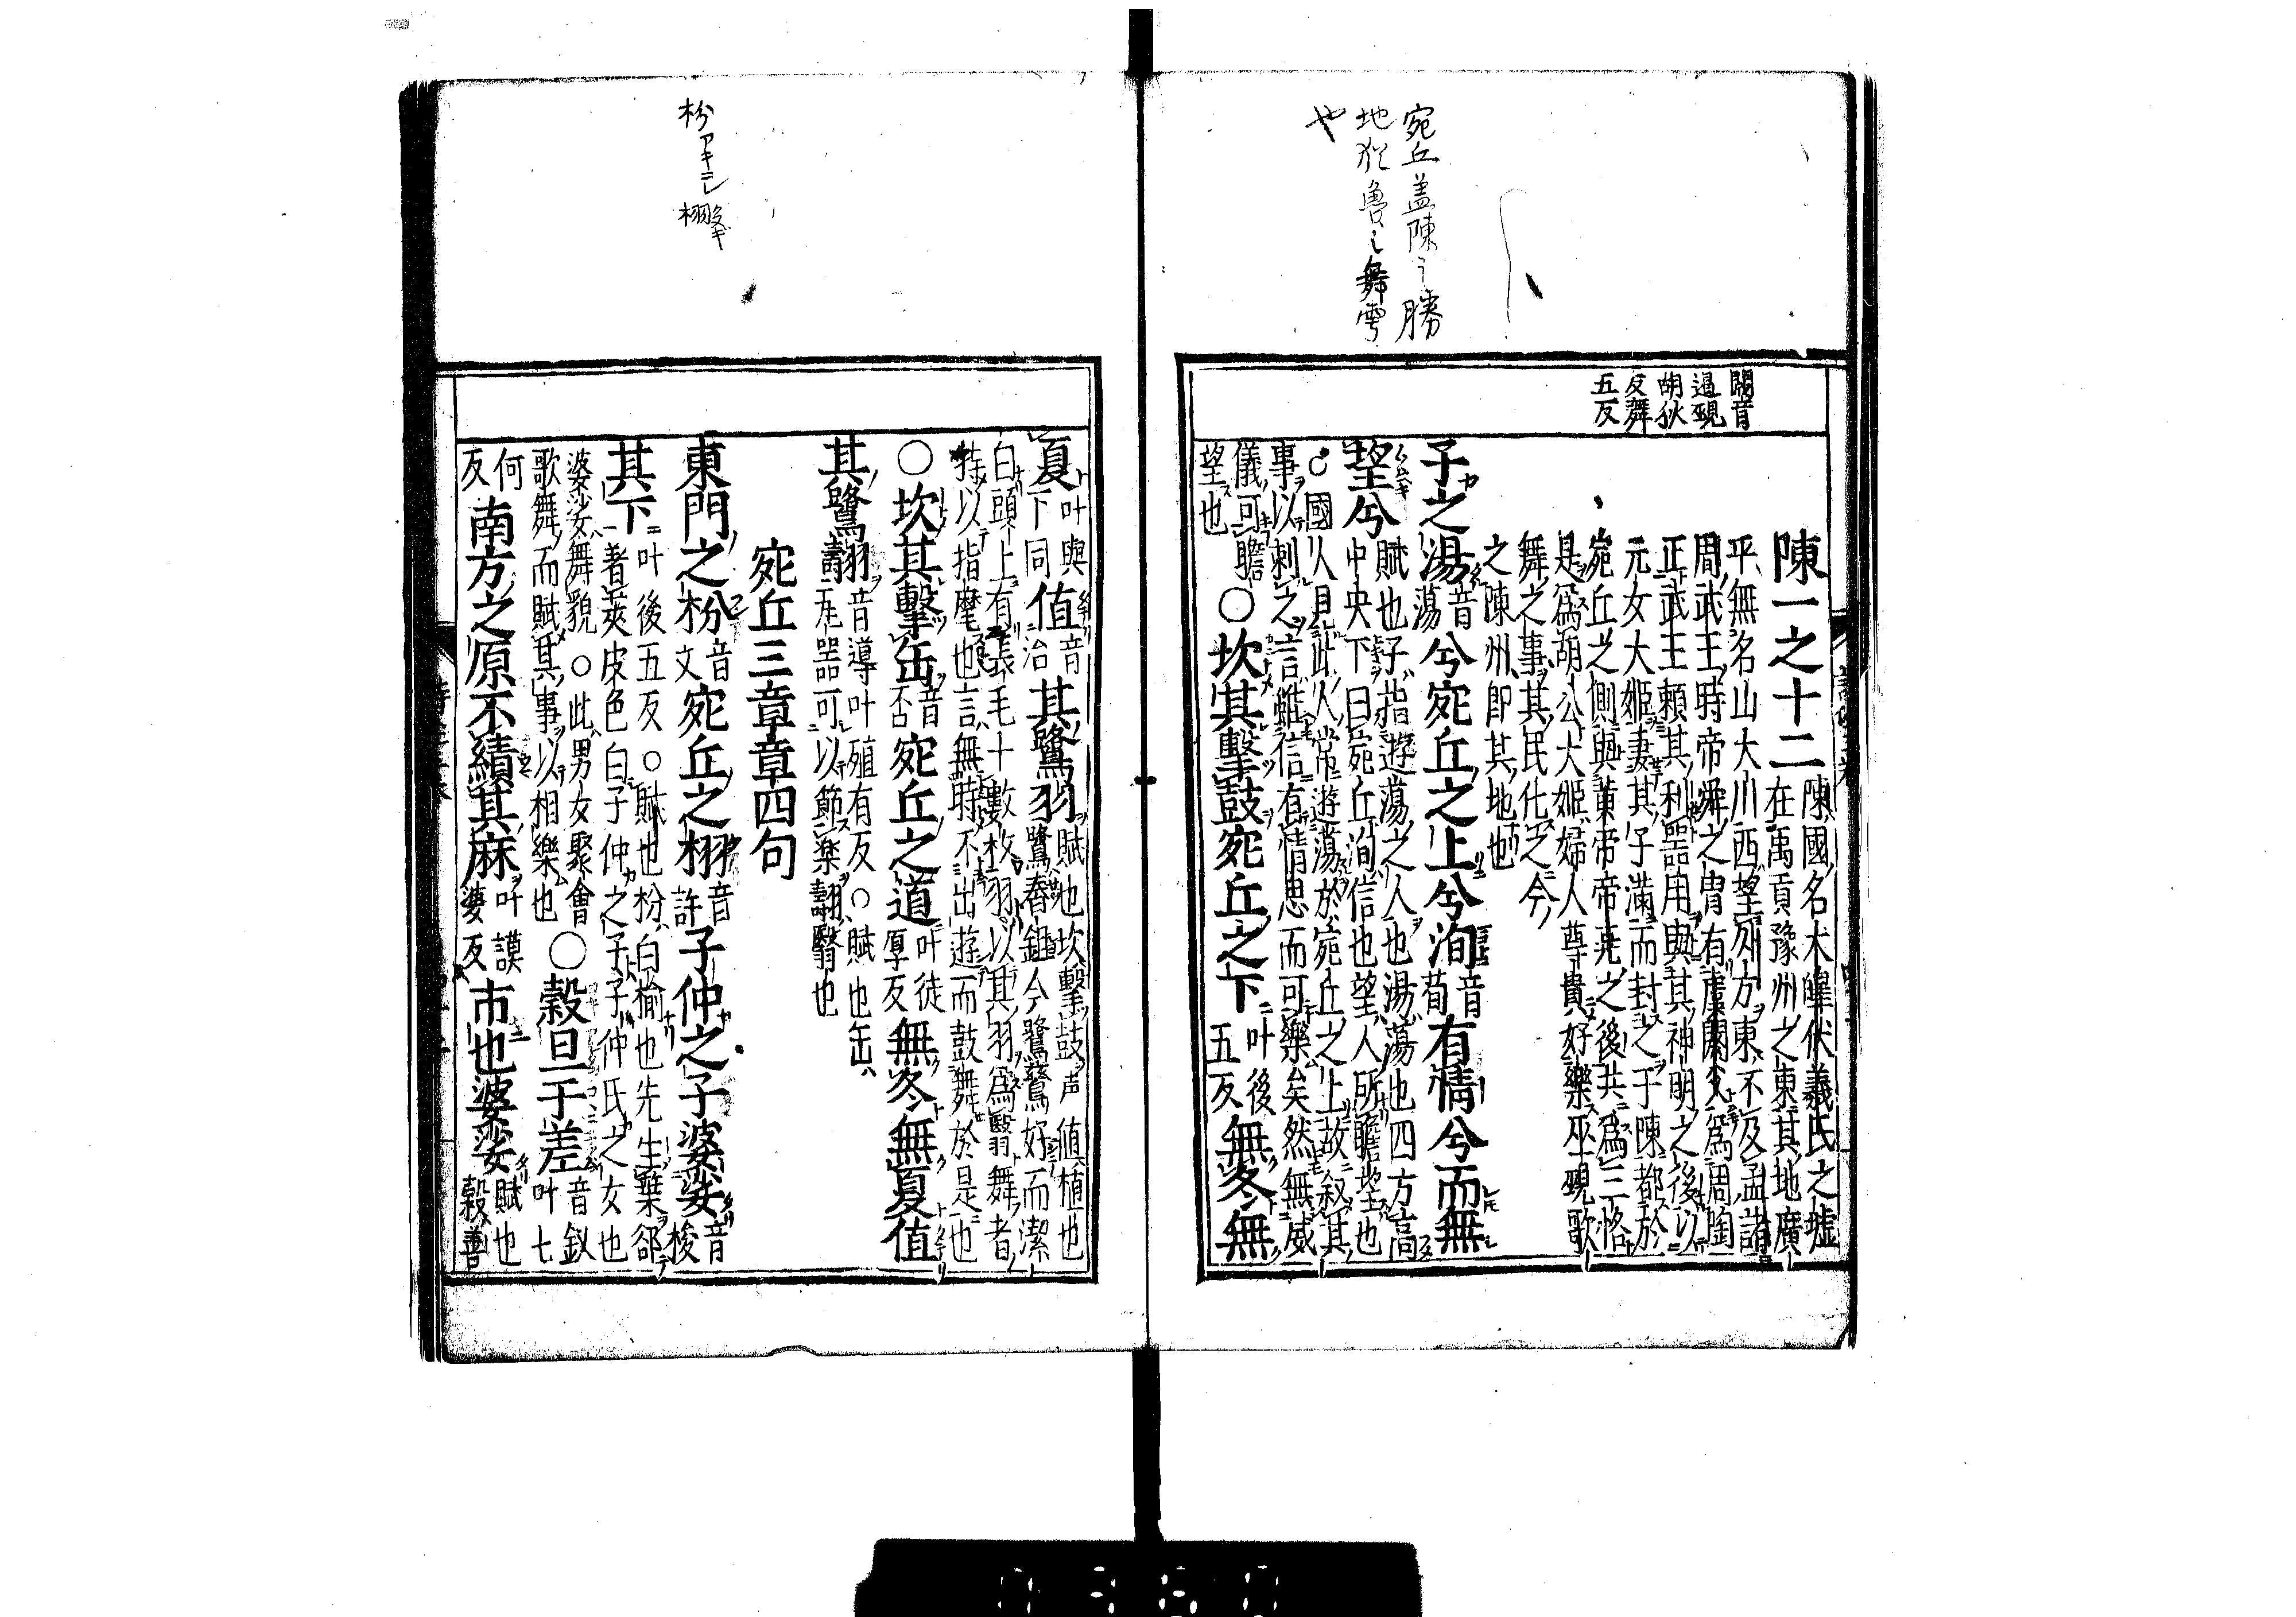 宛丘盖陳之勝
地犹魯之舞雩
也
閼音
遏覡
胡狄
反舞
五反
陳一之十二 陳國名大皥伏羲氏之墟
在禹貢豫州之東其地廣
平無名山大川西望外方東不及孟諸
周武王時帝舜之冑有虞閼父爲周陶
正武王賴其利器用與其神明之後以
元女大姬妻其子滿而封之于陳都於
宛丘之側與黃帝帝堯之後共爲三恪
是爲胡公大姬婦人尊貴好樂巫覡歌
舞之事其民化之今
之陳州即其地也
子之湯音蕩兮宛丘之上兮洵音荀有情兮而無
望兮 賦也子指遊蕩之人也湯蕩也四方高
中央下曰宛丘洵信也望人所瞻望也
○國人見此人常遊蕩於宛丘之上故叙其
事以刺之言雖信有情思而可樂矣然無威
儀可瞻
望也 ○坎其擊鼓宛丘之下叶後五反無冬無
夏叶與下同值音治其鷺羽 賦也坎擊鼓声値植也
鷺舂鉏今鷺鷥好而潔
白頭上有長毛十數枚羽以其羽爲翳舞者
持以指麾也言無時不出遊而鼓舞於是也
○坎其擊缶音否宛丘之道叶徒厚反無冬無夏值
其鷺翿 音導叶殖有反○賦也缶
瓦器可以節樂翿翳也
宛丘三章章四句
東門之枌音文宛丘之栩音許子仲之子婆娑音梭
其下 叶後五反○賦也枌白榆也先生葉郤
者莢皮色白子仲之子子仲氏之女也
婆娑舞貌○此男女聚會
歌舞而賦其事以相樂也 ○穀旦于差音釵叶七
何反南方之原不績其麻叶謨婆反市也婆娑 賦也
穀善
枌アキニレ 栩クヌギ